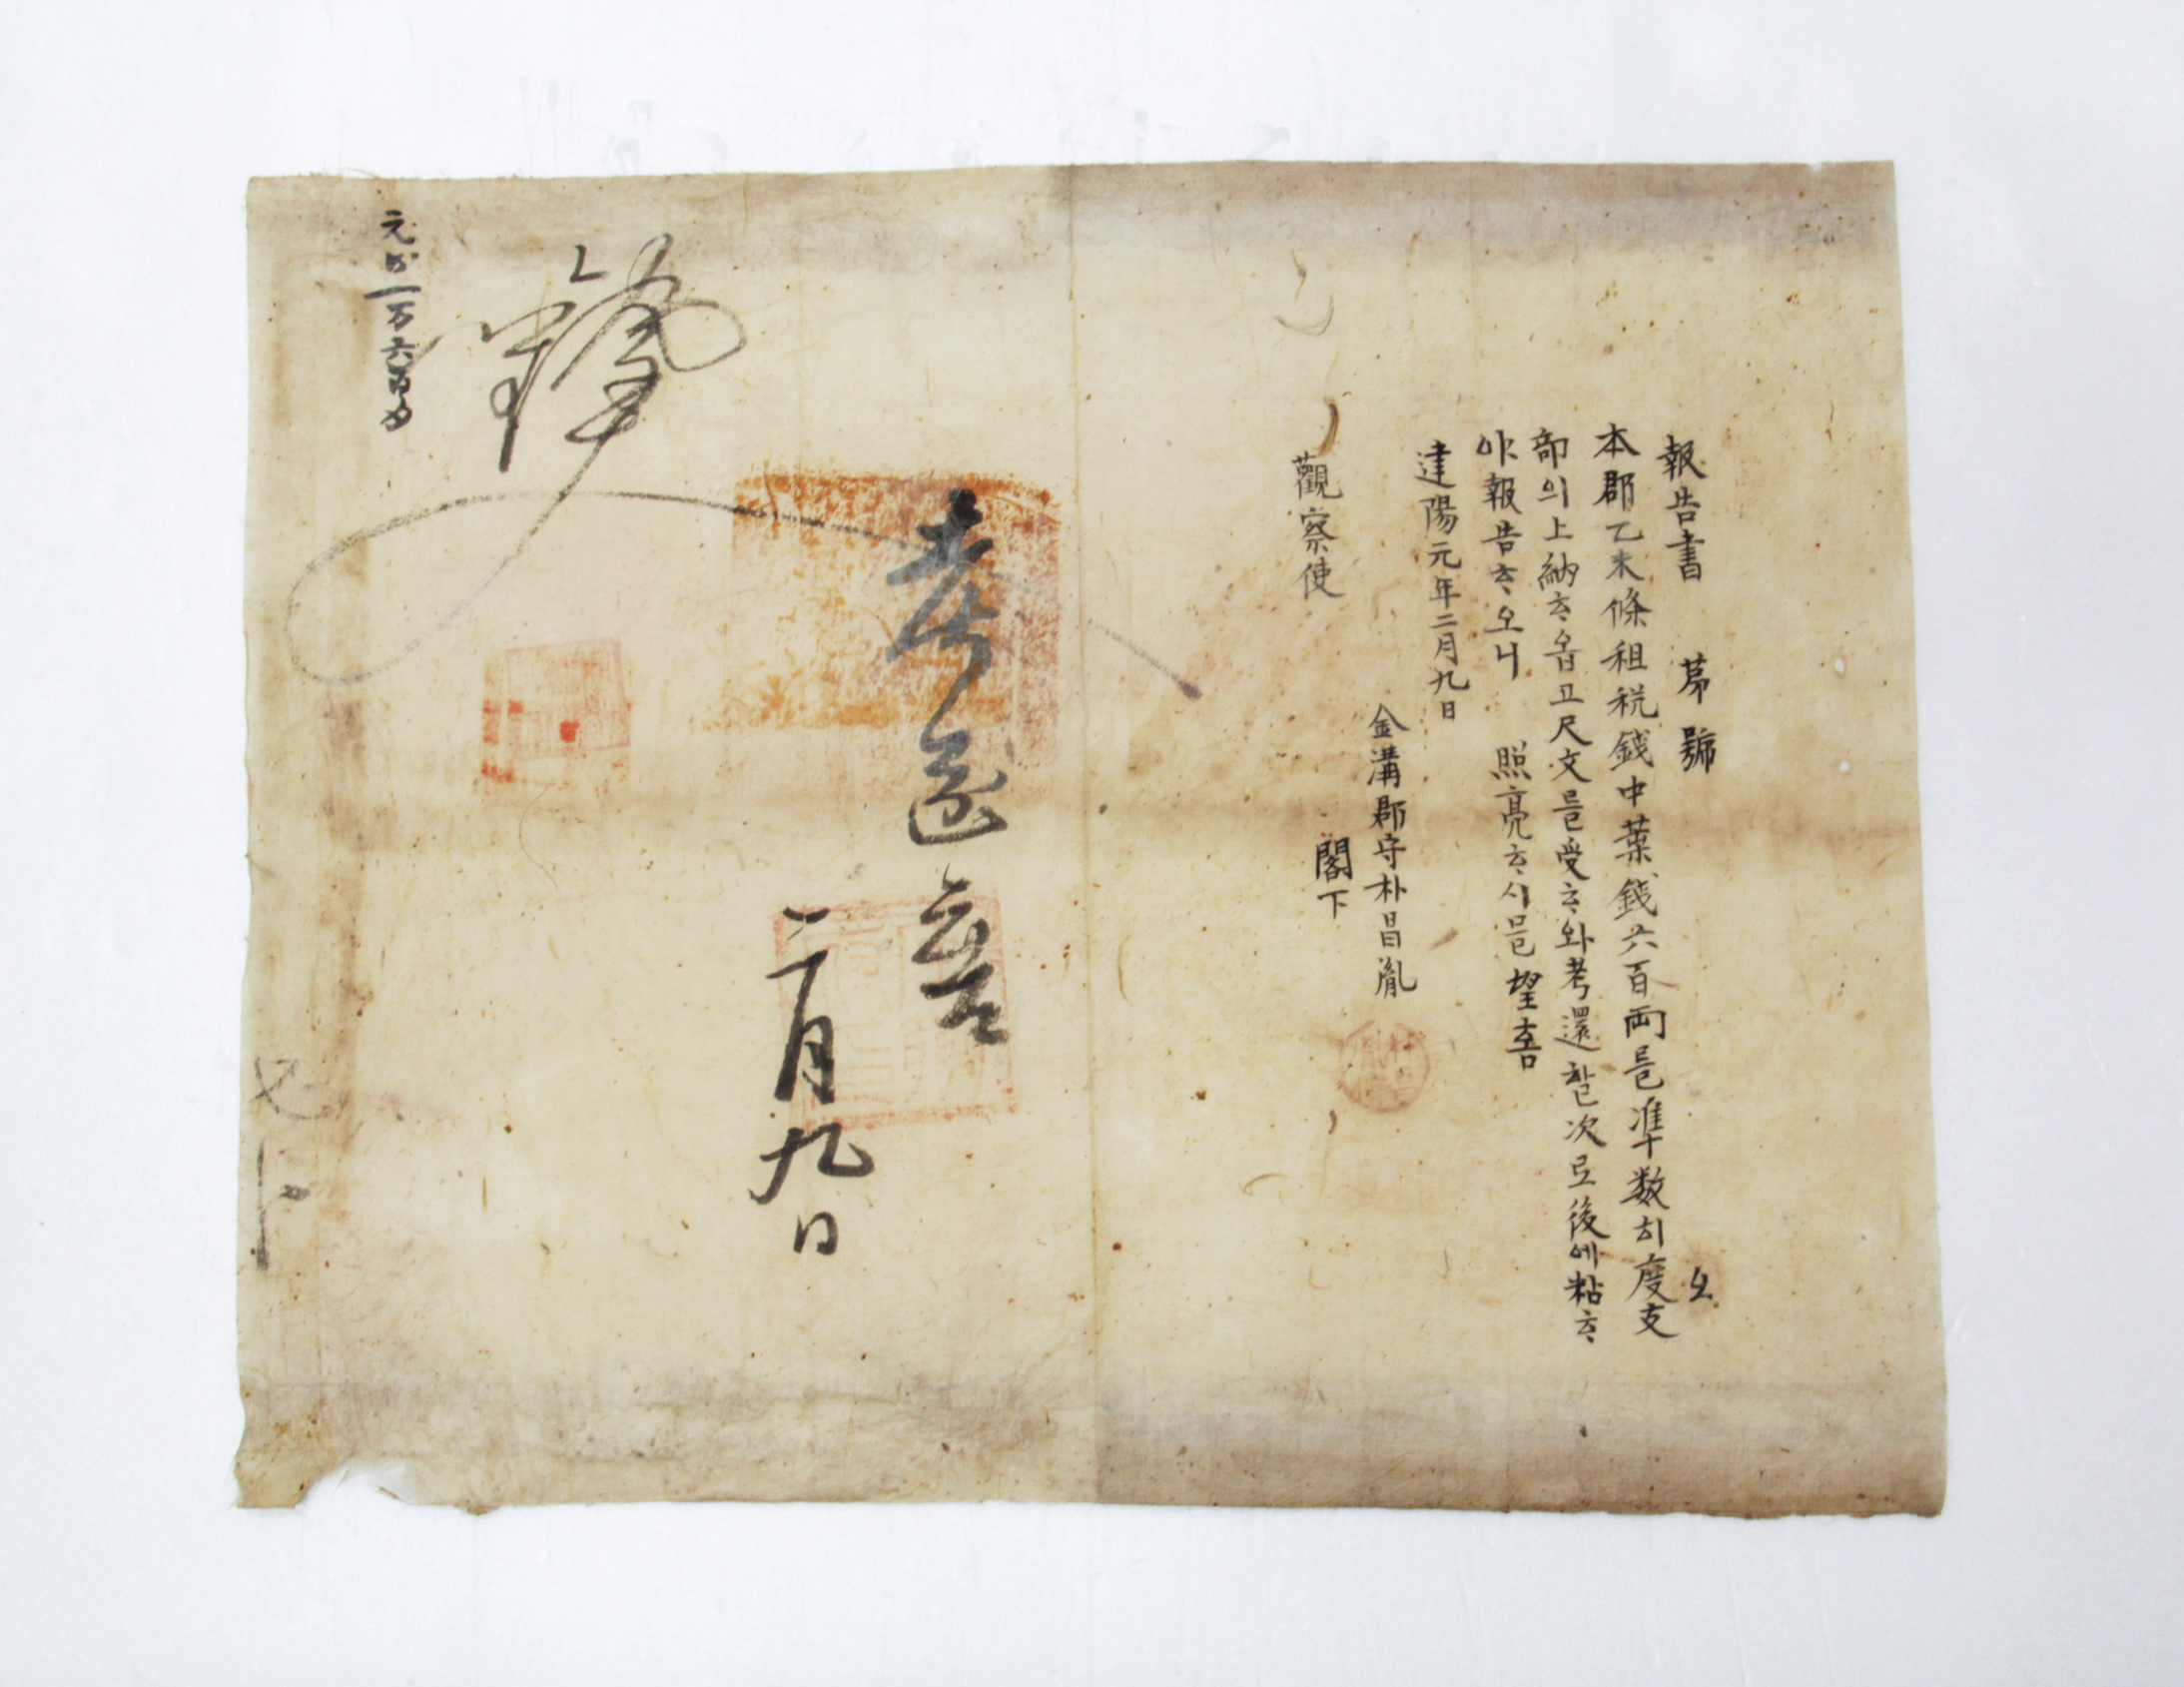 報告書 苐 號
本郡乙未條租税錢中葉錢六百両를準数히度支
部의上納ᄒᆞ옵고尺文를受ᄒᆞ와考還ᄒᆞᆯ次로後에粘ᄒᆞ
야報告ᄒᆞ오니 照亮ᄒᆞ시믈望홈
建陽元年二月九日
金溝郡守朴昌胤
觀察使 閣下
考還音
二月九日